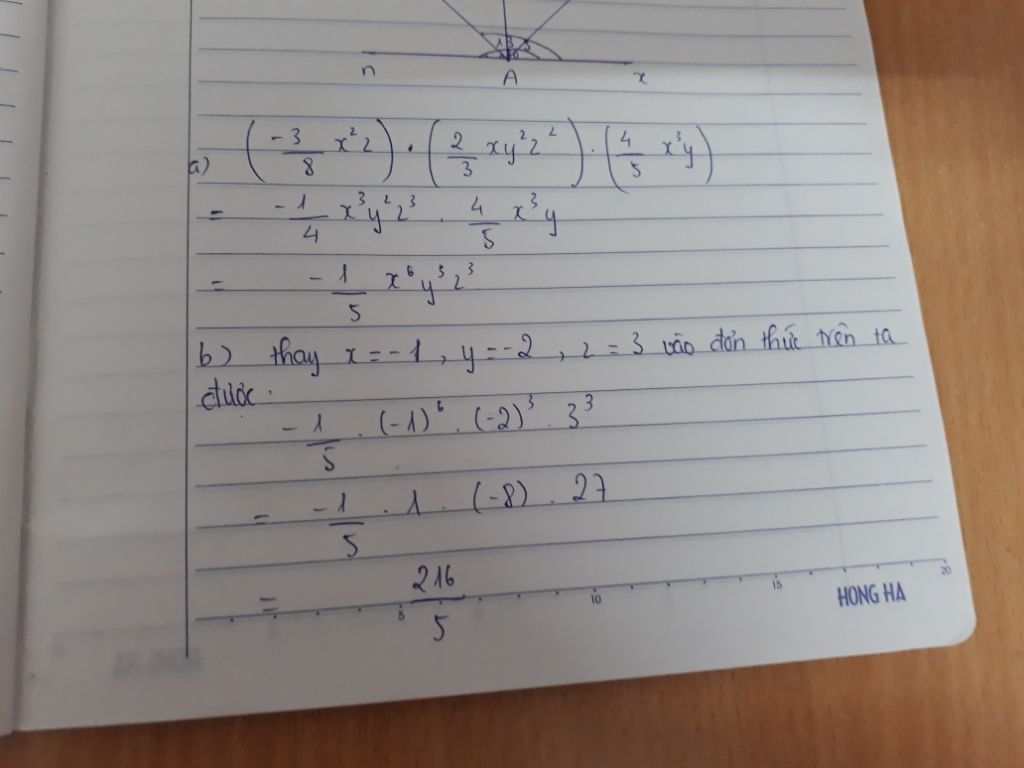 n A x
a) (-3/8 x²z) . (2/3 xy²z²) . (4/5 x³y)
= -1/4 x³y²z³ . 4/5 x³y
= -1/5 x⁶y³z³
b) thay x = -1, y = -2, z = 3 vào đơn thức trên ta
được.
-1/5 . (-1)⁶ . (-2)³ . 3³
= -1/5 . 1 . (-8) . 27
= 216/5
5 10 15 20
HONG HA